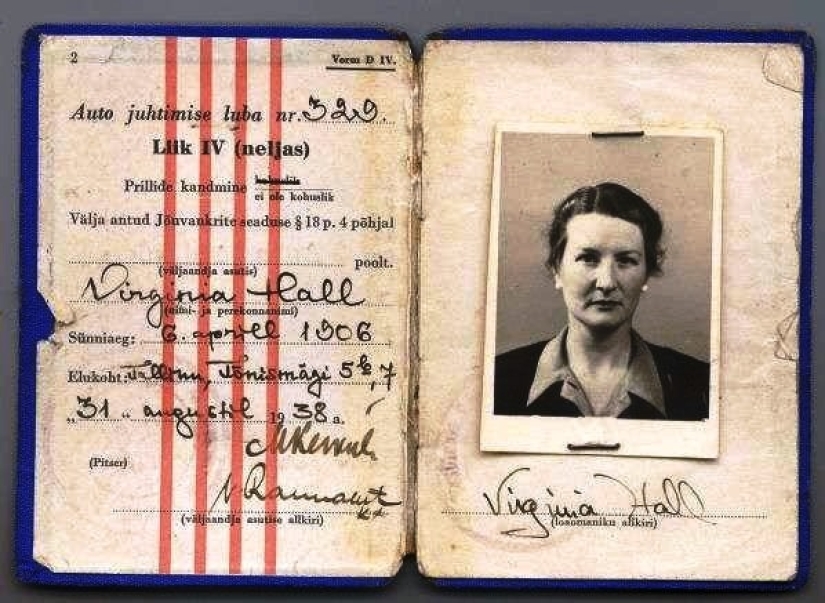 2
Vorm D IV.
Auto juhtimise luba nr. 329.
Liik IV (neljas)
Prillide kandmine kohuslik
ei ole kohuslik
Välja antud Jõuvankrite seaduse § 18 p. 4 põhjal
poolt.
(väljaandja asutis)
Virginia Hall
(nimi- ja perekonnanimi)
Sünniaeg: 6. aprill 1906
Elukoht: Tallinn, Tõnismägi 5 , 7
„31 " augustil 1938 a.
(Pitser)
(väljaandja asutise allkiri)
Virginia Hall
(loaomaniku allkiri)